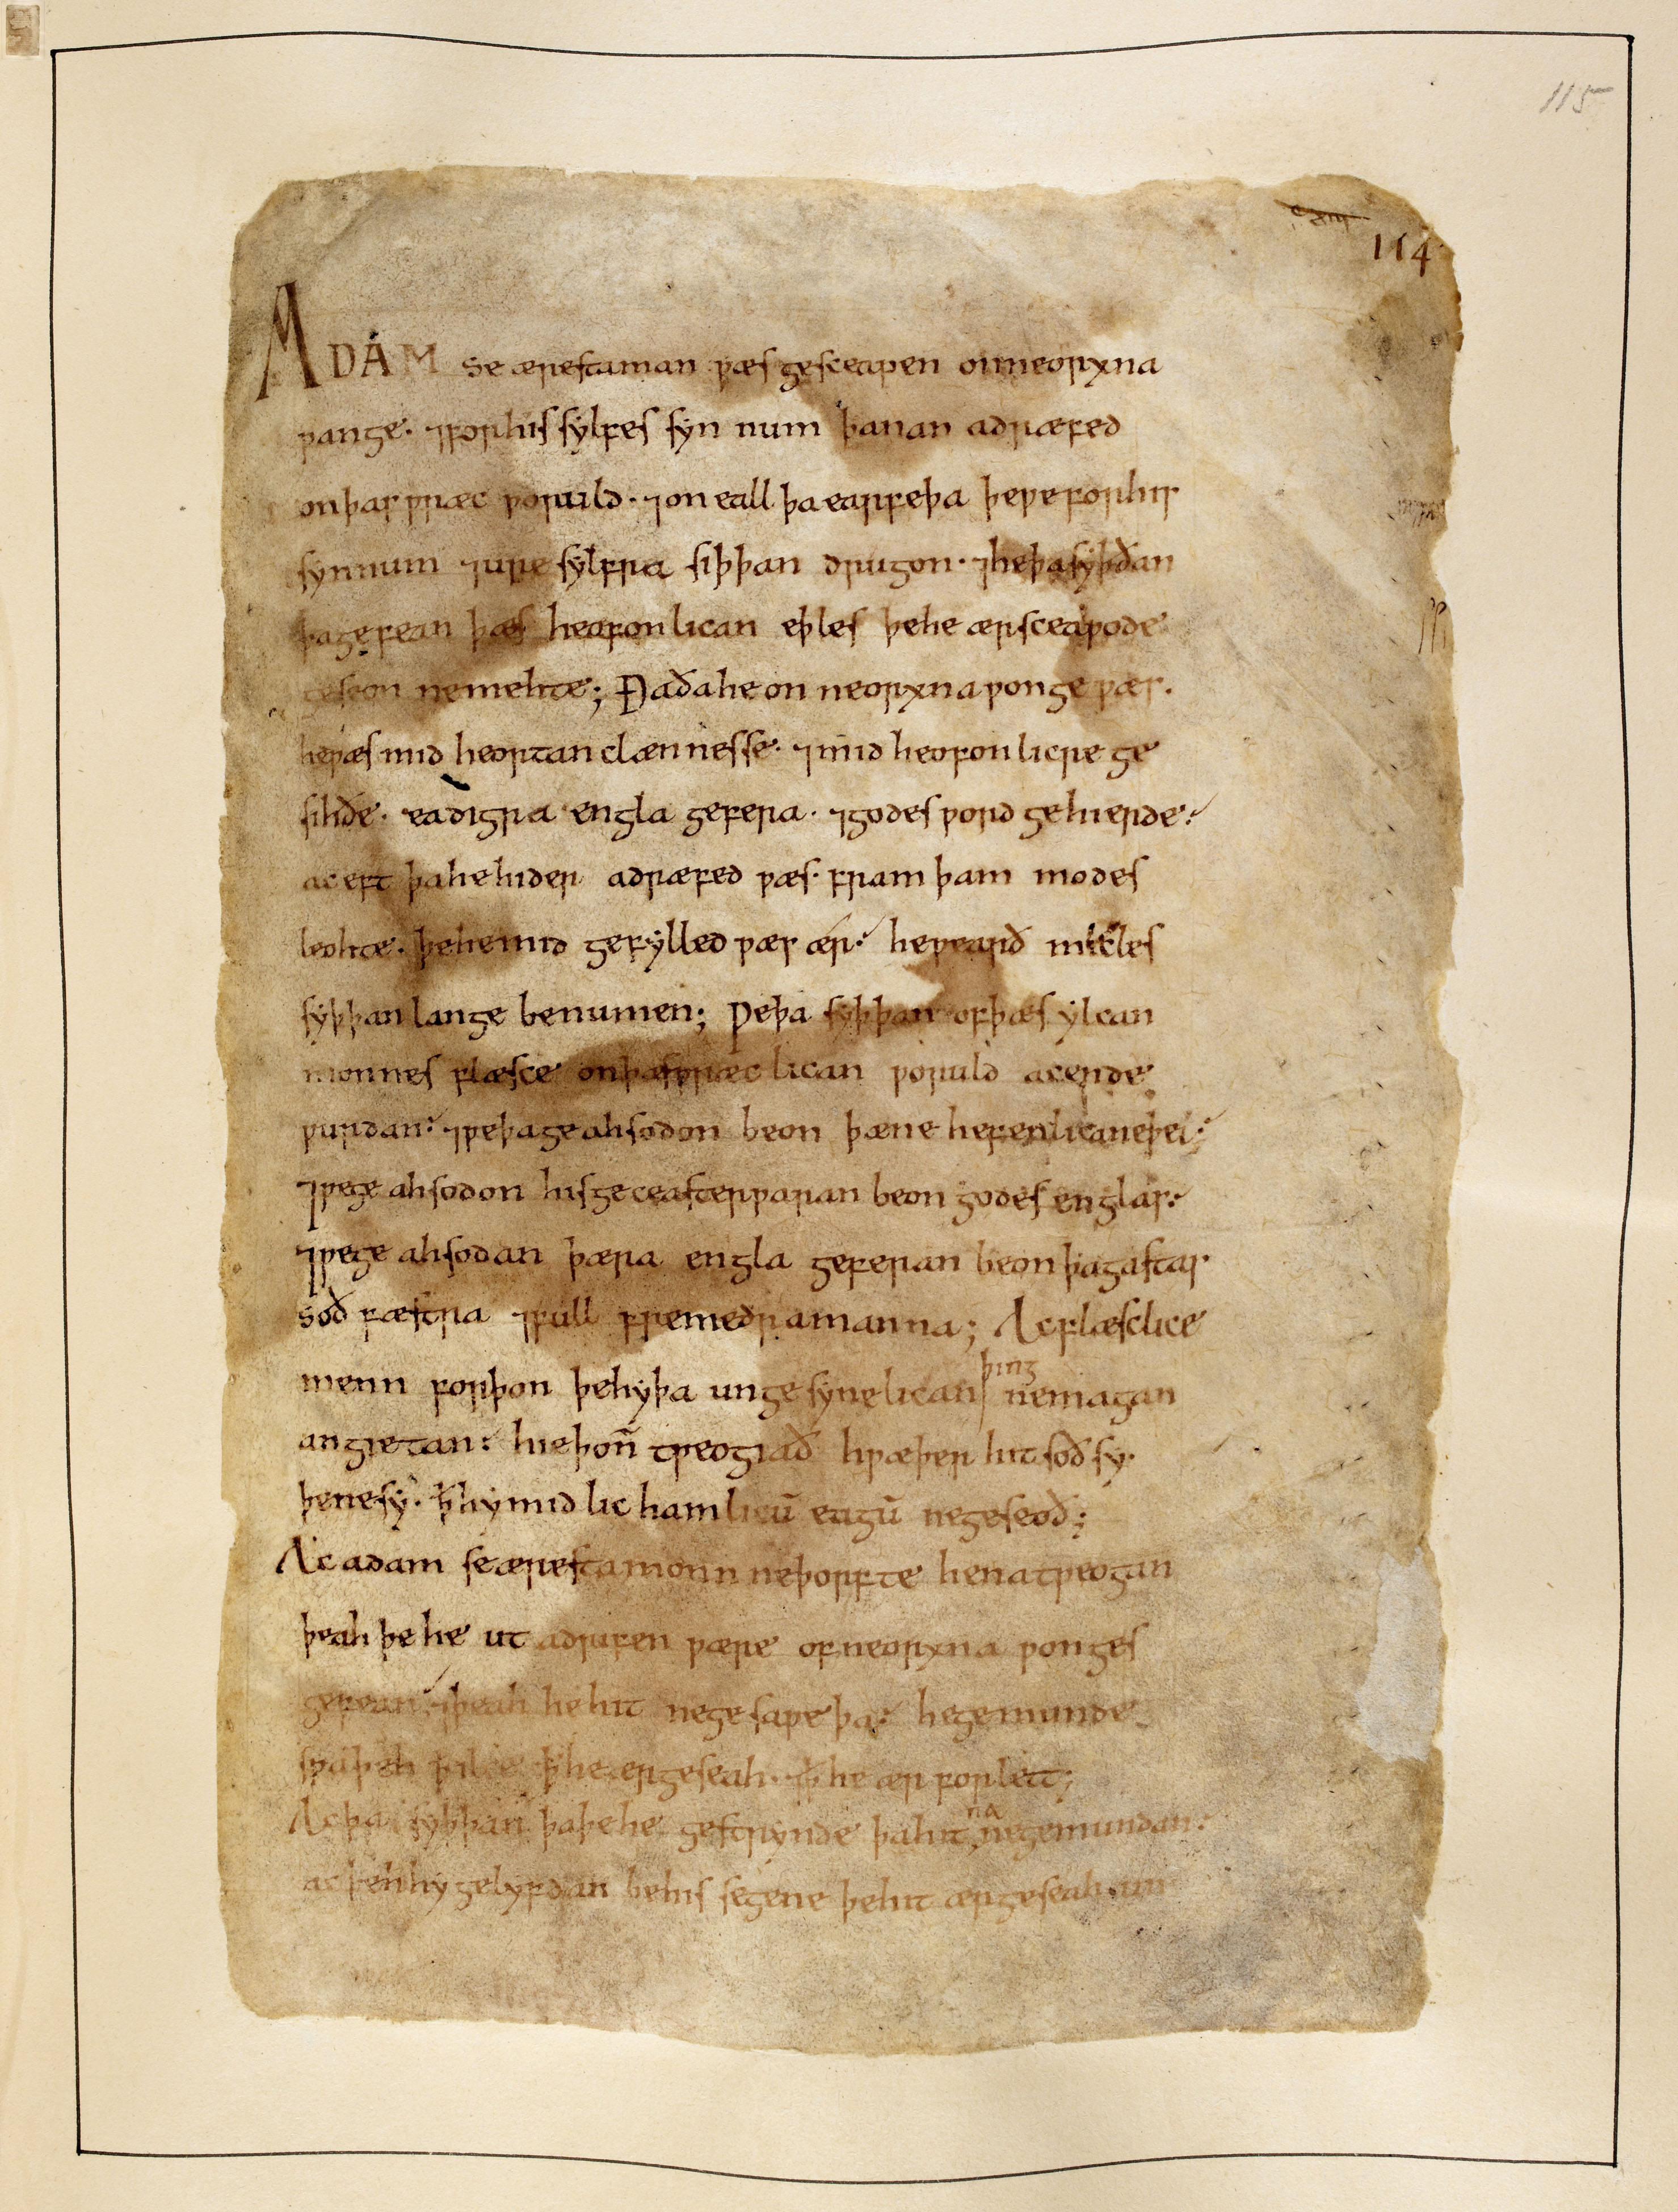 115
114
ADAM se æresta man ƿæs gesceapen on neorxna
ƿange· ⁊ for his sylfes synnum þanan adræfed
on þas ƿræc ƿoruld· ⁊ on eall þa earfeþa þe ƿe for his
synnum ⁊ ure sylfra siþþan drugon· ⁊ he þa syþðan
þa gefean þæs heofonlican eþles þe he ær sceaƿode
geseon ne mehte; Ða ða he on neorxna ƿonge ƿæs·
he ƿæs mid heortan clænnesse· ⁊ mid heofonlicre ge
sihðe· eadigra engla gefera· ⁊ godes ƿord gehierde
ac eft þa he hider adræfed ƿæs· fram þam modes
leohte· þe he mid gefylled ƿæs ær· he ƿearð micles
syþþan lange benumen; Ƿe þa syþþan of þæs ylcan
monnes flæsce on þas ƿræclican ƿoruld acende
ƿurdan· ⁊ ƿe þa geahsodon beon þæne hefenlican eþel;
⁊ ƿe geahsodon his geceasterƿaran beon godes englas·
⁊ ƿe geahsodan þæra engla geferan beon þa gastas
soð fæstra ⁊ full fremedra manna; Ac flæsclice
menn forþon þe hy þa ungesynelican þing ne magan
angietan· hie þoñ tƿeogiað hƿæþer hit soð sy·
þe ne sy· ꝥ hy mid lichamlicū eagū ne geseoð;
Ac adam se æresta monn ne þorfte he na tƿeogan
þeah þe he ut adrifen ƿære of neorxna ƿonges
gefean· ⁊ þeah he hit ne gesaƿe þa· he gemunde
sƿa þeh ꝥ he ær geseah· ⁊ ꝥ he ær forlett;
Ac þa syþþan þa þe he gestrynde þa hit na ne gemundan·
ac þeh hy gelyfdan be his segene þe hit ær geseah